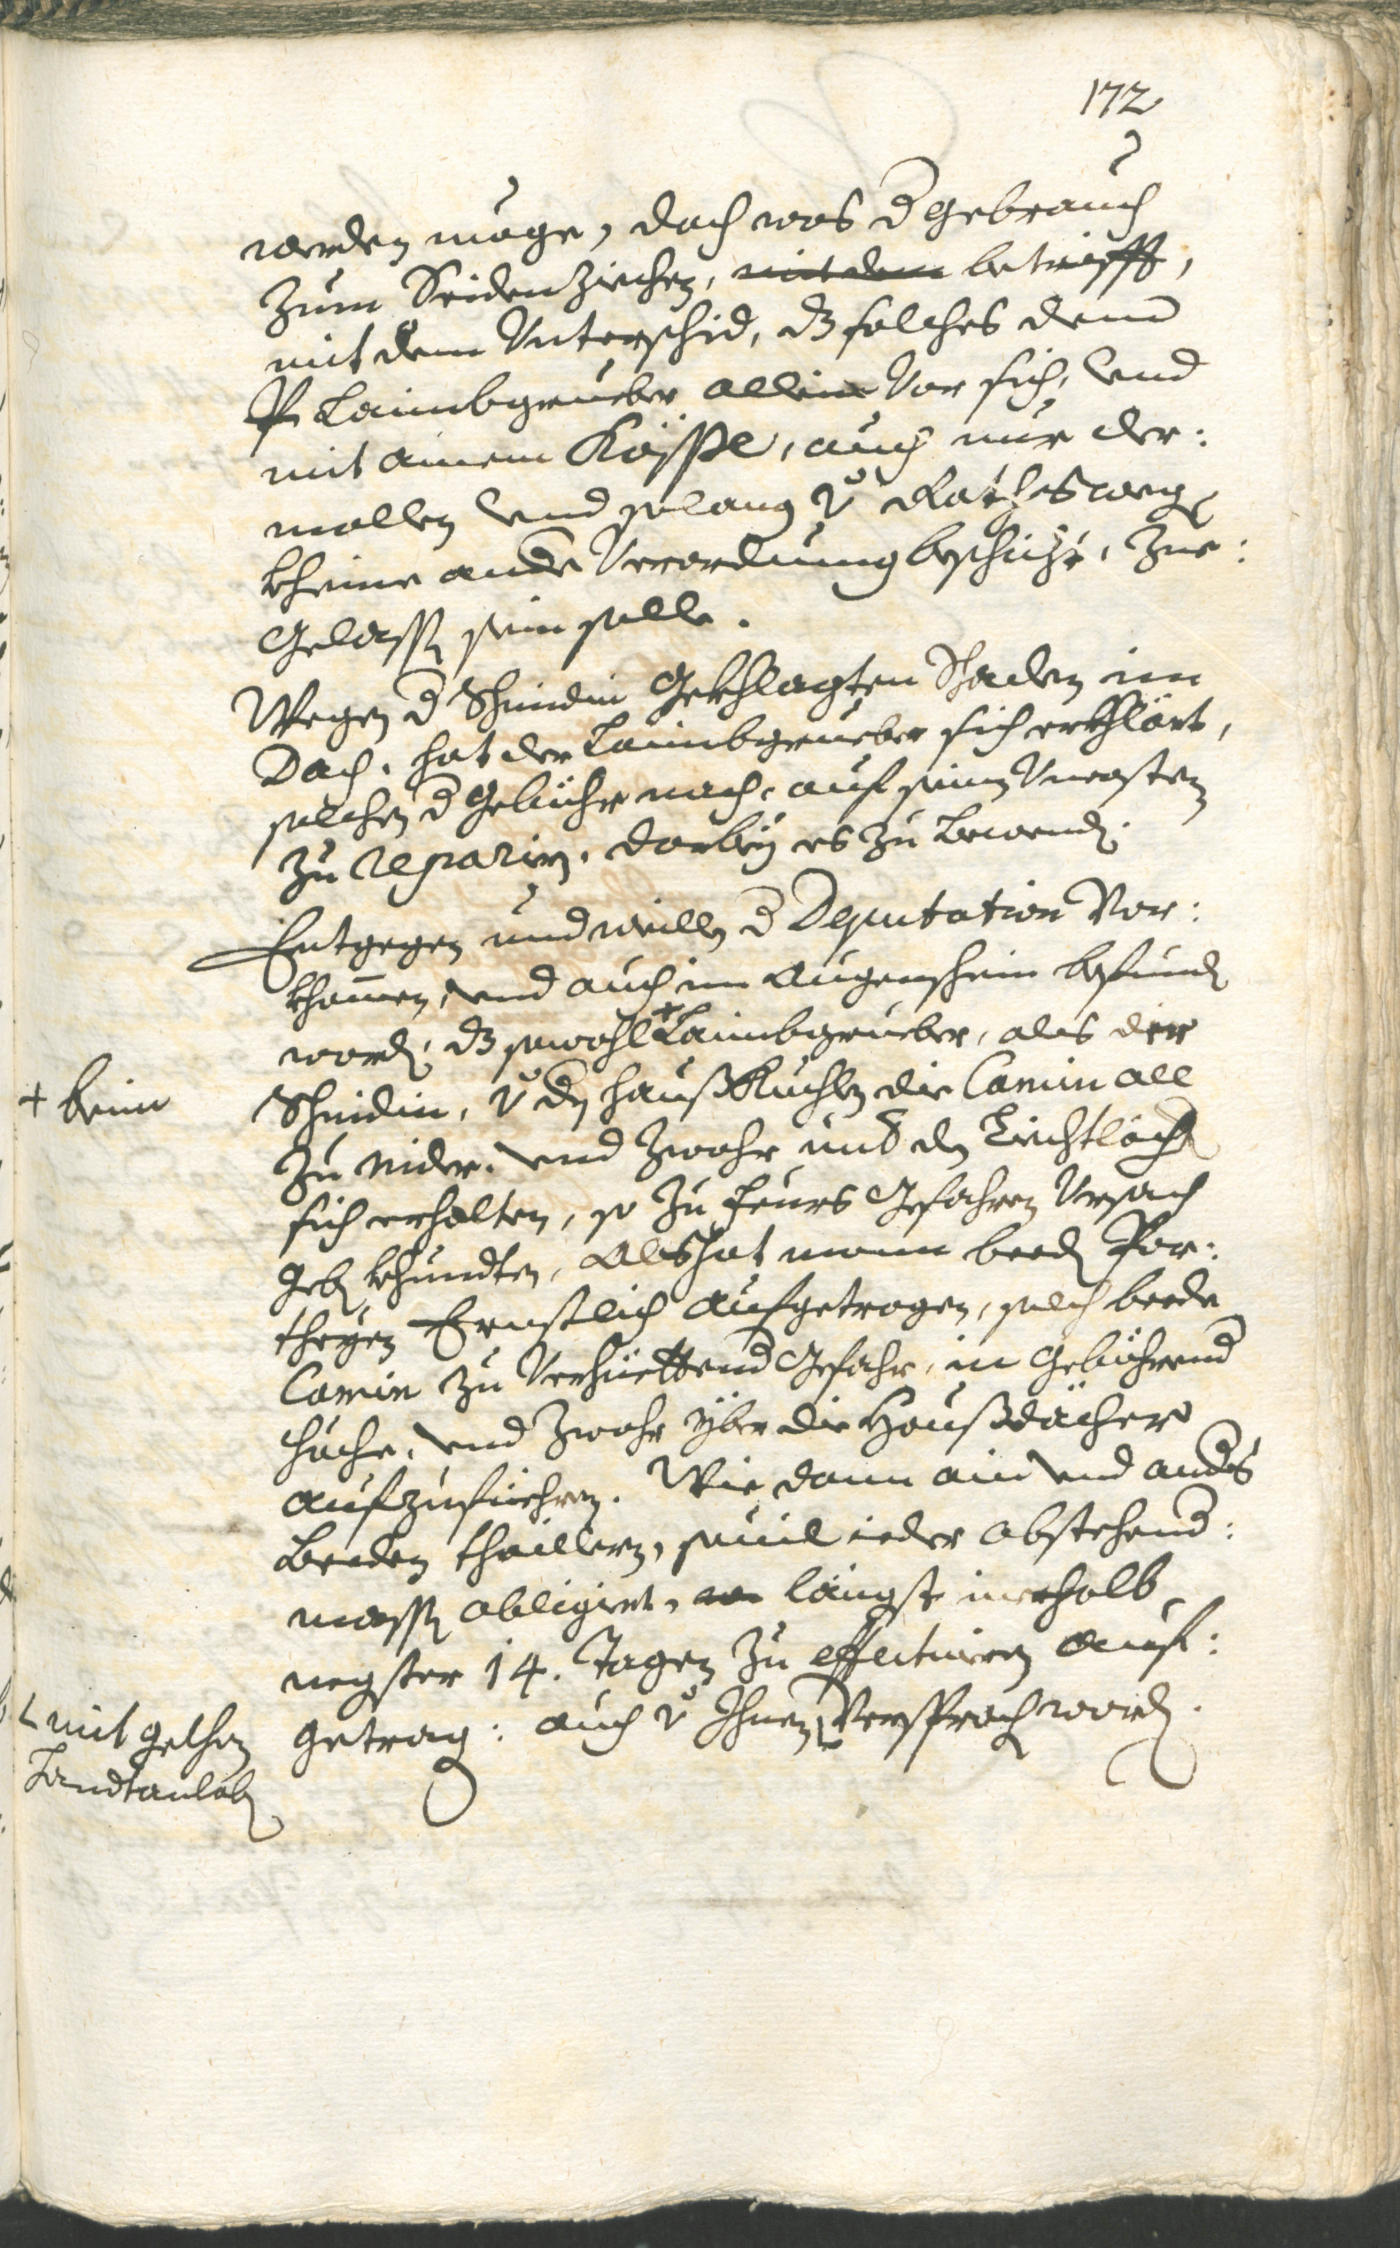 172
werden möge, doch was d Gebrauch
zum Seidenziechen, mit dem betrifft,
mit dem Vnterschid, dz solches dem
H Laimbgrueber allein vor sich, vnd
mit ainem Kössel, auch nur der:
mallen vnd solang v Rathswegen
kheine andre Verordnung beschicht, zue:
gelassen sein solle.
Wegen d Schmidin geklagten Schaden im
Dach, hat der Laimbgrueber sich erkhlärt,
solchen d gebühr nach, auf seine Vncosten
zu reparirn, darbey es zu bewenden.
Entgegen und weillen d Deputation Vor:
khomen, vnd auch im Augenschein befunden
worden, dz sowohl + Laimbgrueber, als der
+ beim
Schmidin, v dn hauß Kuchlen die Camin all
zu nider, vnd zwahr mit dn Liechtlöchern
sich erhalten, so zu feurs Gefahren Vrsach
geben khundten, Als hat mann beeden Par:
theyen Ernstlich aufgetragen, solch beede
Camin zu verhüettend Gefahr, in gebührend
höche, vnd zwahr yber die Haußdächer
aufzufiehren. Wie dann ain vnd anders
beeden thaillen, souil ieder abstehend:
massen obligiret, längst inerhalb
negster 14. Tagen zu effectuiren auf:
getragen: auch v Ihnen versprochen worden.
mit gethon
Handtanlob